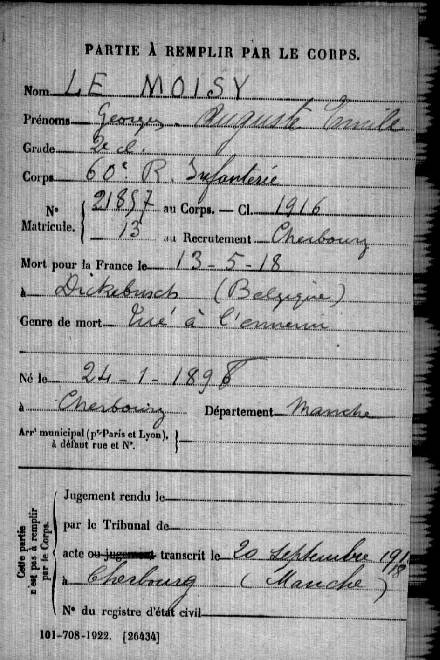 PARTIE À REMPLIR PAR LE CORPS.
Nom LE MOISY
Prénoms Georges Auguste Emile
Grade 2e cl.
Corps 60e R. Infanterie
N° Matricule. { 21857 au Corps. — Cl. 1916
13 au Recrutement Cherbourg
Mort pour la France le 13-5-18
à Dickebusch (Belgique)
Genre de mort Tué à l'ennemi
Né le 24-1-1896
à Cherbourg Département Manche
Arrt municipal (pr Paris et Lyon), }
à défaut rue et N°.
Cette partie n'est pas à remplir par le Corps.
Jugement rendu le
par le Tribunal de
acte ou jugement transcrit le 20 septembre 1918
à Cherbourg (Manche)
N° du registre d'état civil
101-708-1922. [26434]